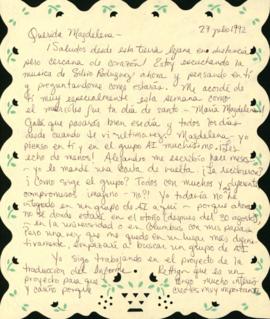 29 julio 1992
Querida Magdelena -
¡Saludos desde esta tierra lejana en distancia
pero cercana de corazón! Estoy escuchando la
musica de Silvio Rodriguez ahora y pensando en ti
y preguntandome como estaras. Me acordé de
ti muy especialmente esta semana como
el miercoles fue tu día de santo - María Magdalena!
Ojalá que pasaras bien ese día y todos los días
desde cuando se vi ultima vez. Magdelena - yo
pienso en ti y en el grupo AI muchísimo - ¡les
echo de menos! Alejandro me escribió hace meses
- yo le mandé una carta de vuelta. ¿Te escribieron?
¿Como sigue el grupo? Todos con muchos y diferentes
compromisos, imagino - no?! Yo todavía no he
integrado en un grupo de AI aquí - porque ahora
no se donde estaré en el otoño (despues del 30 agosto)
- en la universidad o en Columbus con mis papás.
Pero una vez que me quedo en un lugar mas defini-
tivamente, empezaré a buscar un grupo de AI
Yo sigo trabajando en el proyecto de la
traducción del Informe Rettig
que es un
proyecto para que tengo mucho interés
y cariño porque muy importante